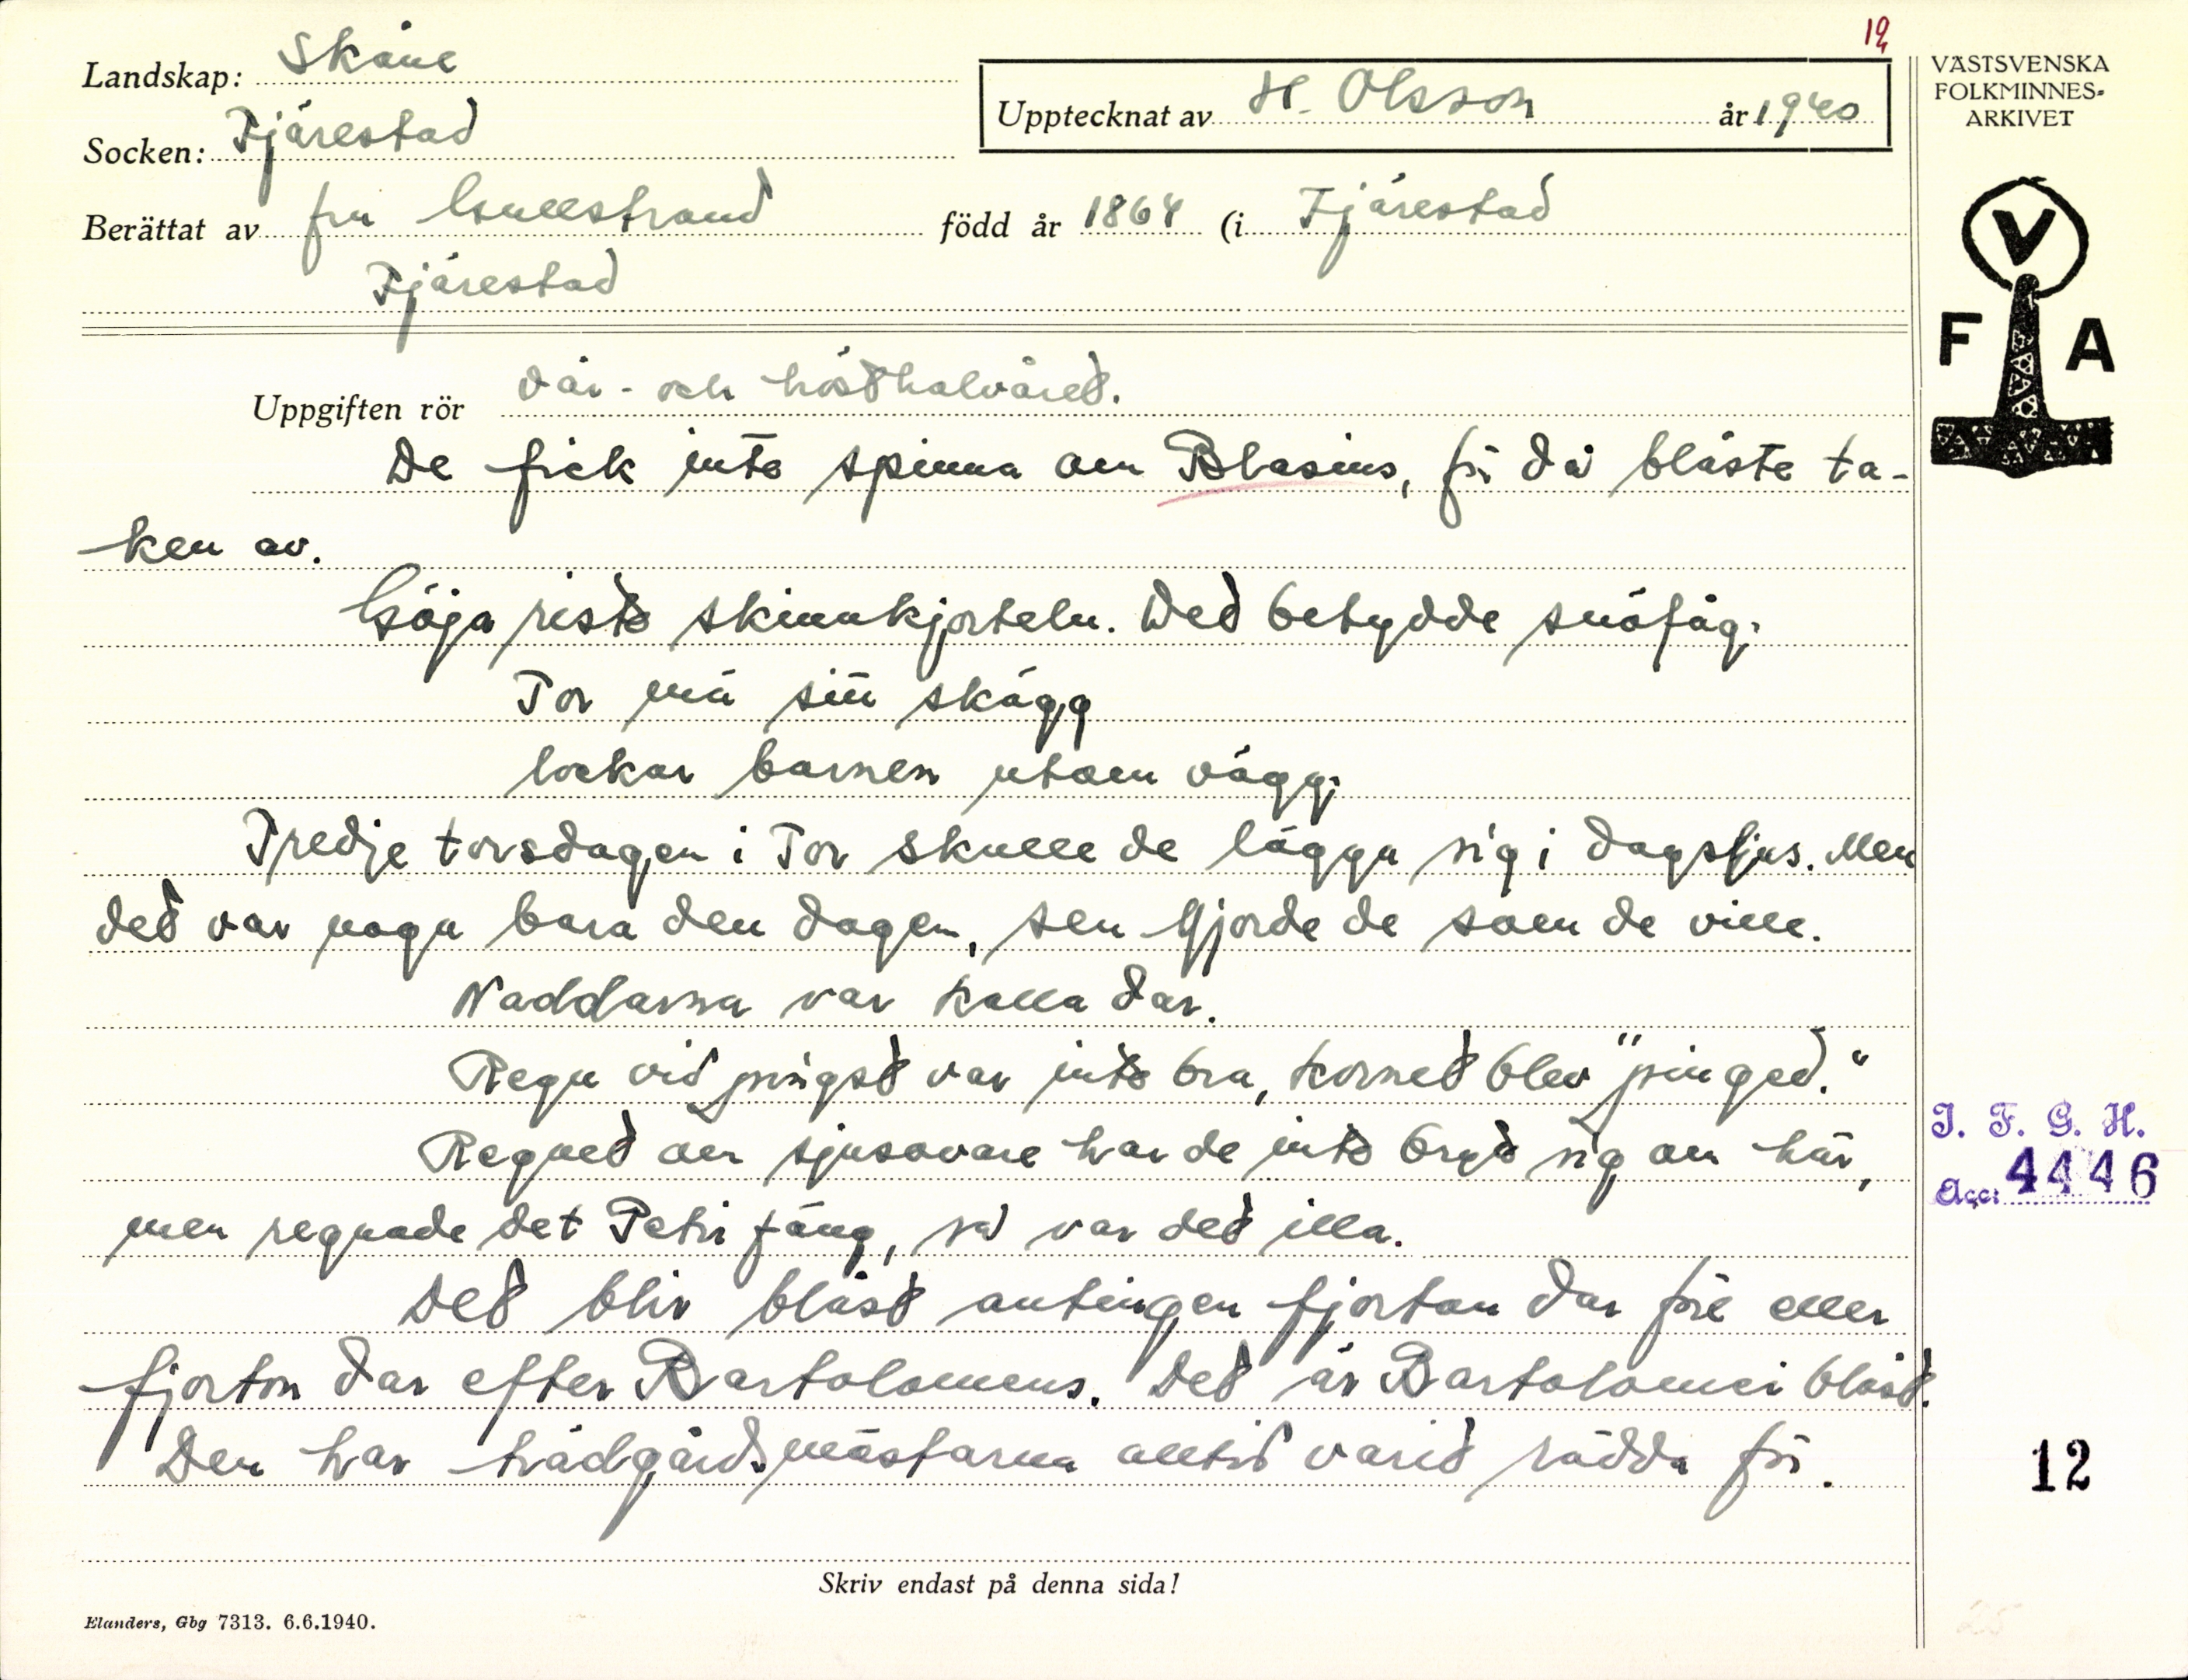 12
Landskap: Skåne
Socken: Fjärestad
Upptecknat av H. Olsson år 1940
Berättat av fru Gullstrand född år 1864 (i Fjärestad
Fjärestad
VÄSTSVENSKA
FOLKMINNES-
ARKIVET
V
F A
Uppgiften rör vår- och hösthalvåred.
De fick inte spinna om Blasius, för då blåste ta-
ken av.
Göja riste skinnkjorteln. Ded betydde snöfåg.
Tor mä siit skägg
lockar barnen utom vägg.
Tredje torsdagen i Tor skulle de lägga sig i dagsljus. Men
ded var noga bara den dagen, sen gjorde de som de ville.
Naddarna var kalla dar.
Regn vid pingst var inte bra, kornet blev "pinged."
Regned om sjusovare har de inte bryd sig om här,
men regnade det Petri fång, så var ded illa.
Ded blir blåst antingen fjortan dar före eller
fjorton dar efter Bartolomeus. Ded är Bartolomei blåst.
Den har trädgårdsmästarna alltid varid rädda för.
I. F. G. H.
Acc: 4446
12
Skriv endast på denna sida!
Elanders, Gbg 7313. 6.6.1940.